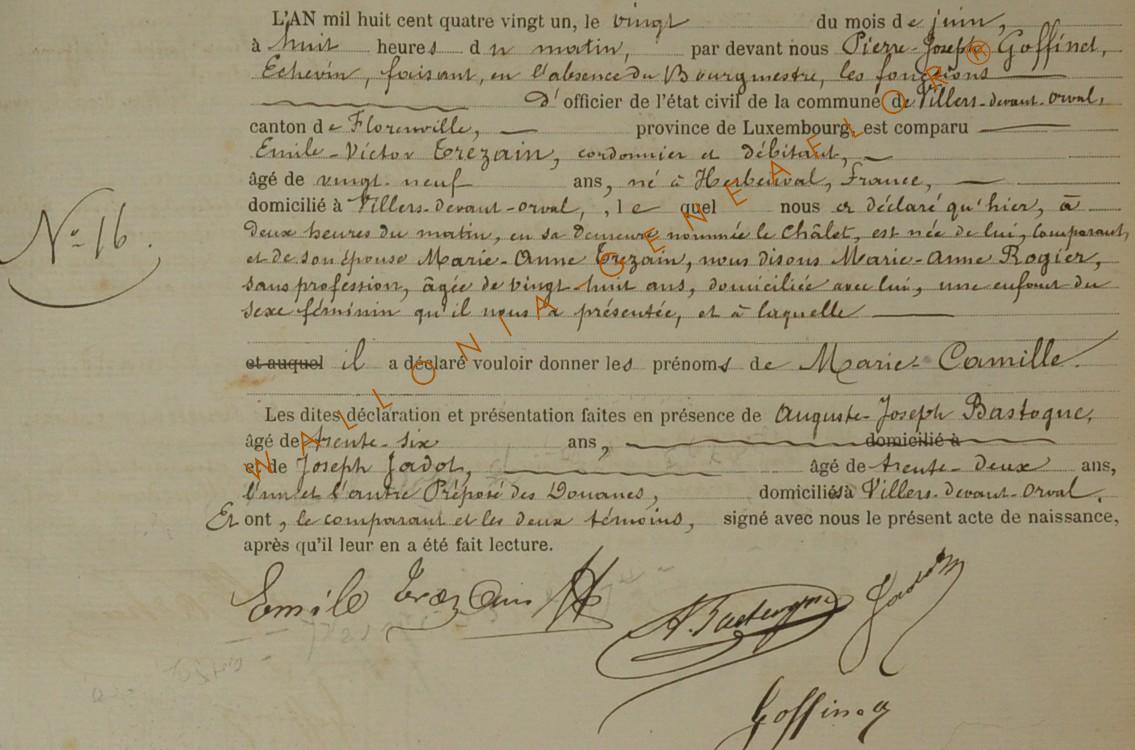 L'AN mil huit cent quatre vingt un, le vingt du mois de juin,
à huit heures du matin, par devant nous Pierre-Joseph Goffinet,
Echevin, faisant, en l'absence du Bourgmestre, les fonctions
d'officier de l'état civil de la commune de Villers-devant-orval,
canton de Florenville, province de Luxembourg, est comparu
Emile-Victor Trezain, cordonnier et débitant,
âgé de vingt-neuf ans, né à Herbeuval, France,
domicilié à Villers-devant-orval, , lequel nous a déclaré qu'hier, à
N° 16.
deux heures du matin, en sa demeure nommée le Châlet, est née de lui, comparant,
et de son épouse Marie-Anne Trezain, nous disons Marie-Anne Rogier,
sans profession, âgée de vingt-huit ans, domiciliée avec lui, une enfant du
sexe féminin qu'il nous a présentée, et à laquelle
et auquel il a déclaré vouloir donner les prénoms de Marie-Camille.
Les dites déclaration et présentation faites en présence de Auguste-Joseph Bastogne,
âgé de trente-six ans, domicilié à
et de Joseph Jadot, âgé de trente-deux ans,
l'un et l'autre Préposé des Douanes, domiciliés à Villers-devant-orval.
Et ont, le comparant et les deux témoins, signé avec nous le présent acte de naissance,
après qu'il leur en a été fait lecture.
Emile Trezain
A. Bastogne
Jadot
Goffinet
WALLONIA GENEAELORR®